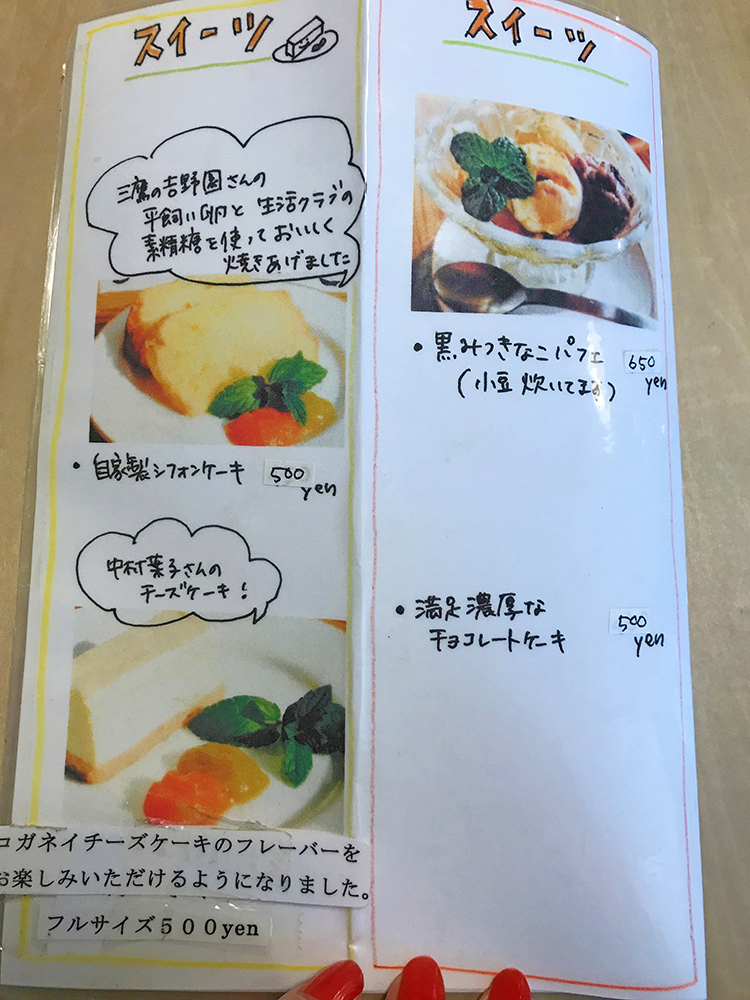 スイーツ
三鷹の吉野園さんの
平飼い卵と生活クラブの
素精糖を使っておいしく
焼きあげました
・自家製シフォンケーキ 500
yen
中村菓子さんの
チーズケーキ!
コガネイチーズケーキのフレーバーを
お楽しみいただけるようになりました。
フルサイズ500yen
スイーツ
・黒みつきなこパフェ 650
(小豆炊いてます) yen
・満足濃厚な 500
チョコレートケーキ yen